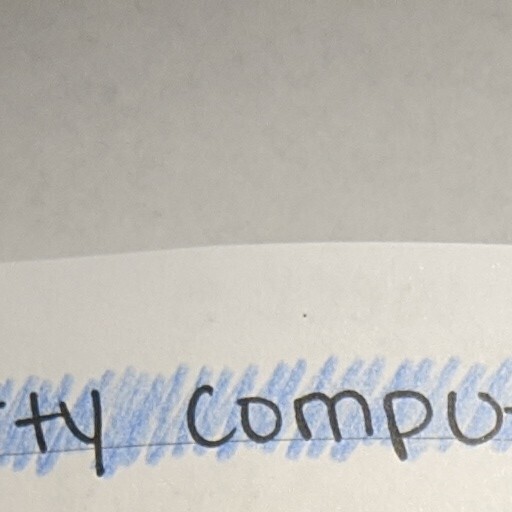 ty compu